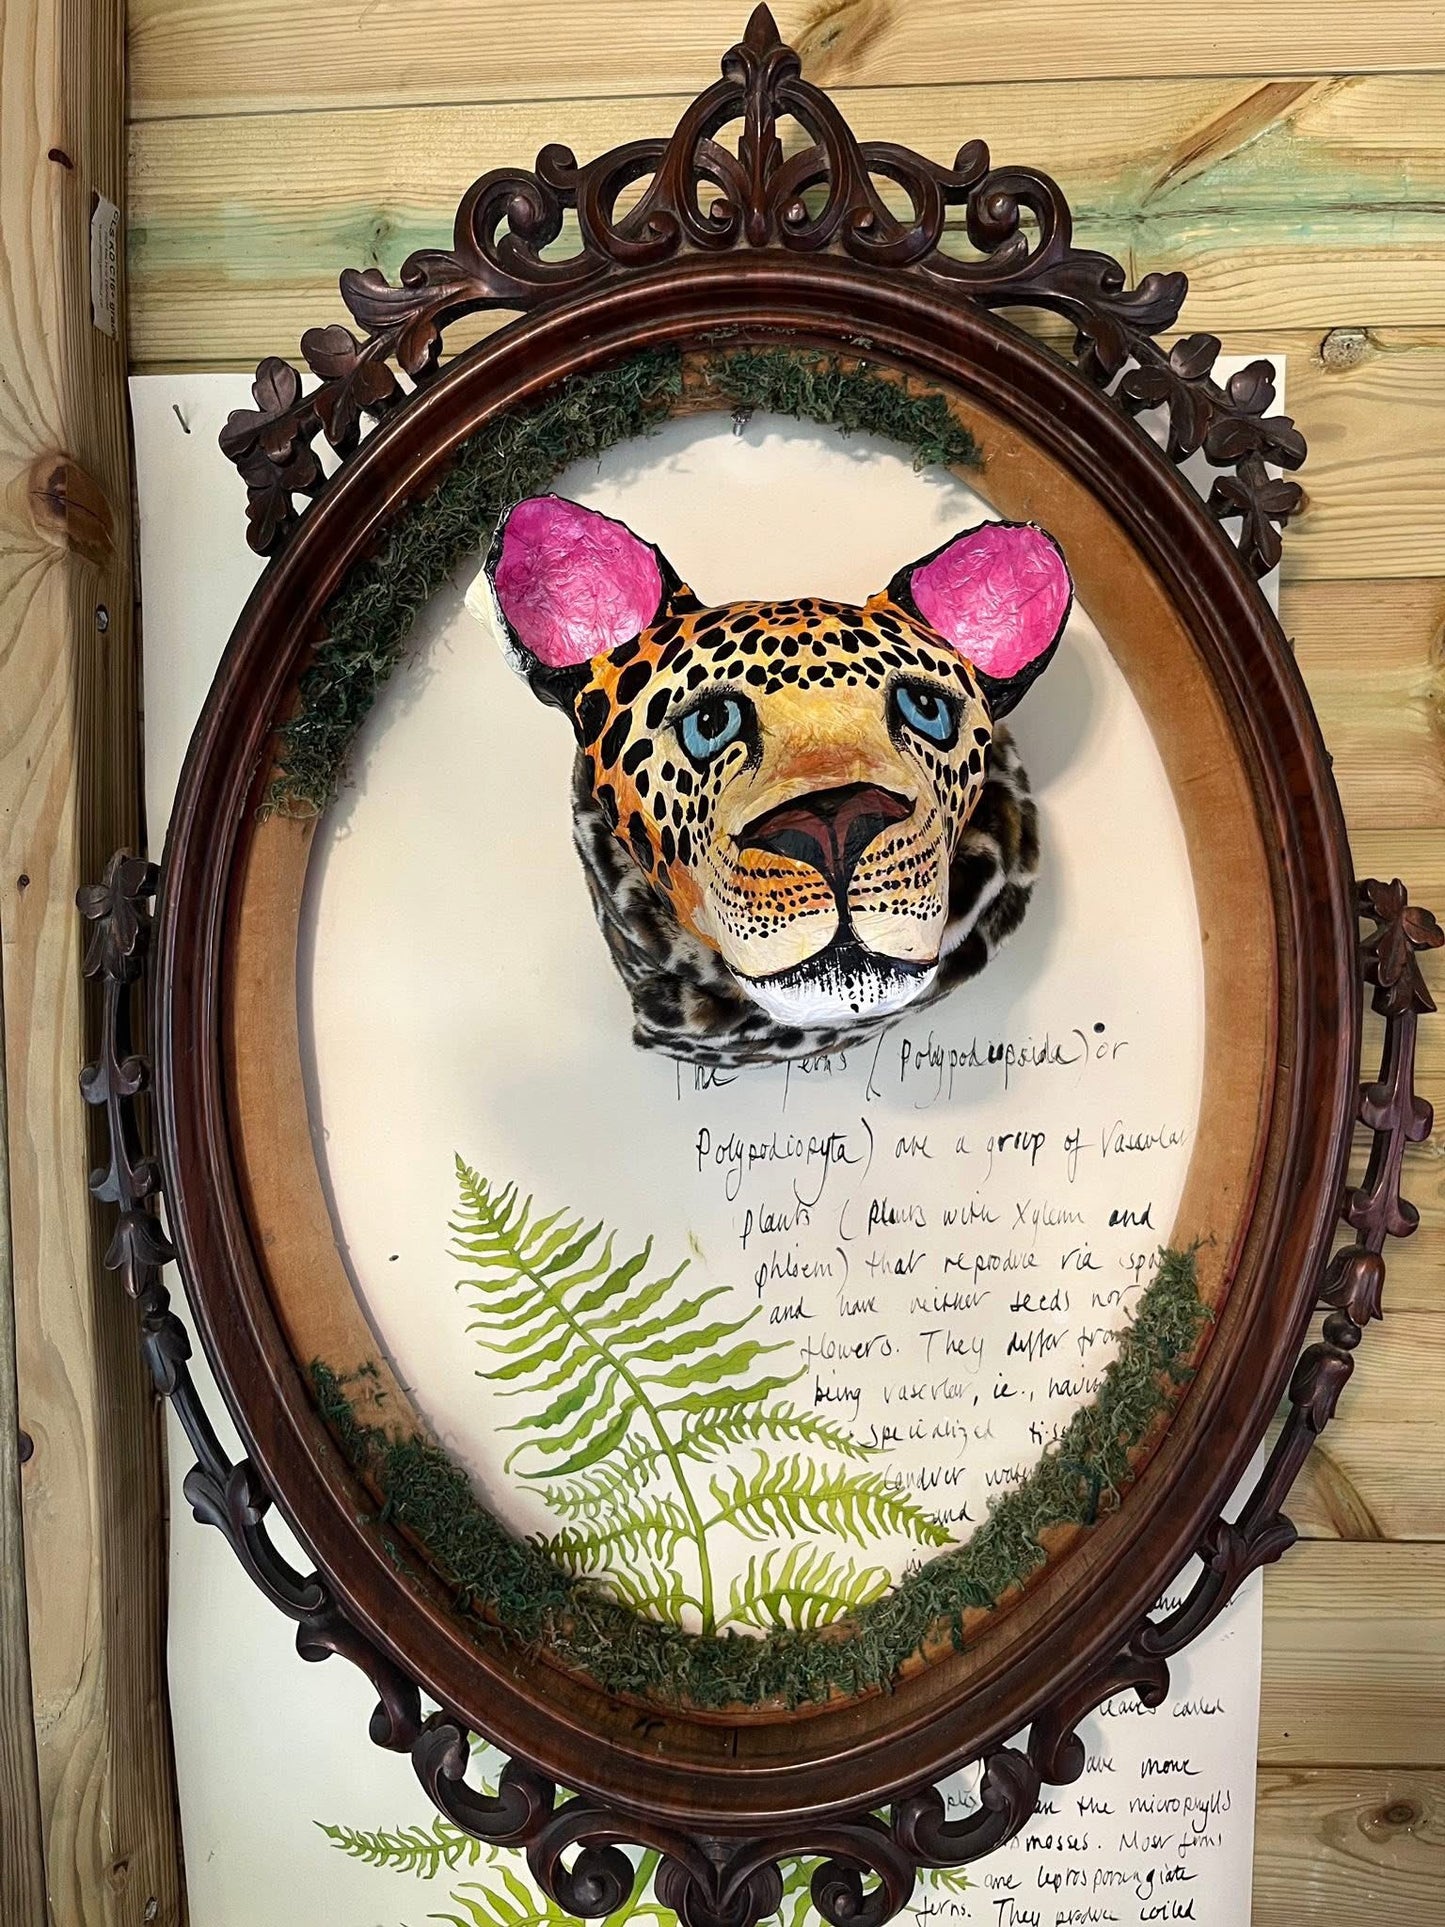 The ferns (Polypodiopsida) or
Polypodiophyta) are a group of vascular
plants (plants with xylem and
phloem) that reproduce via
and have neither seeds nor
flowers. They differ from
being vascular, i.e., having
specialized
and
leaves called
have more
than the microphylls
mosses. Most ferns
are leptosporangiate
ferns. They produce coiled